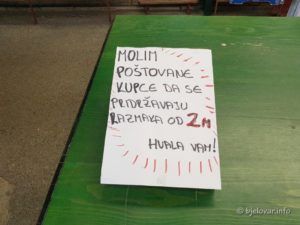 MOLIM
POŠTOVANE
KUPCE DA SE
PRIDRŽAVAJU
RAZMAKA OD 2M
HVALA VAM!
© bjelovar.info